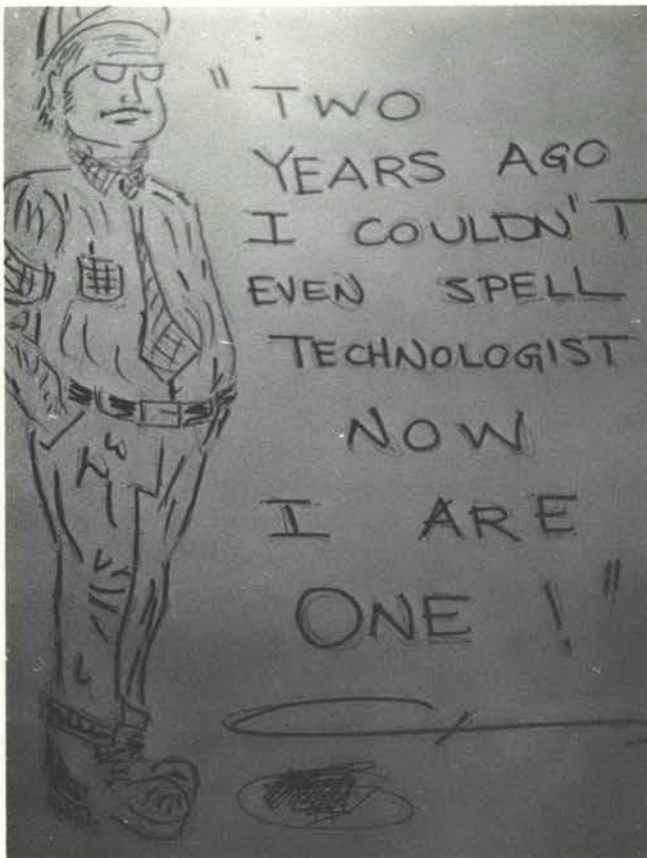 "TWO
YEARS AGO
I COULDN'T
EVEN SPELL
TECHNOLOGIST
NOW
I ARE
ONE!"